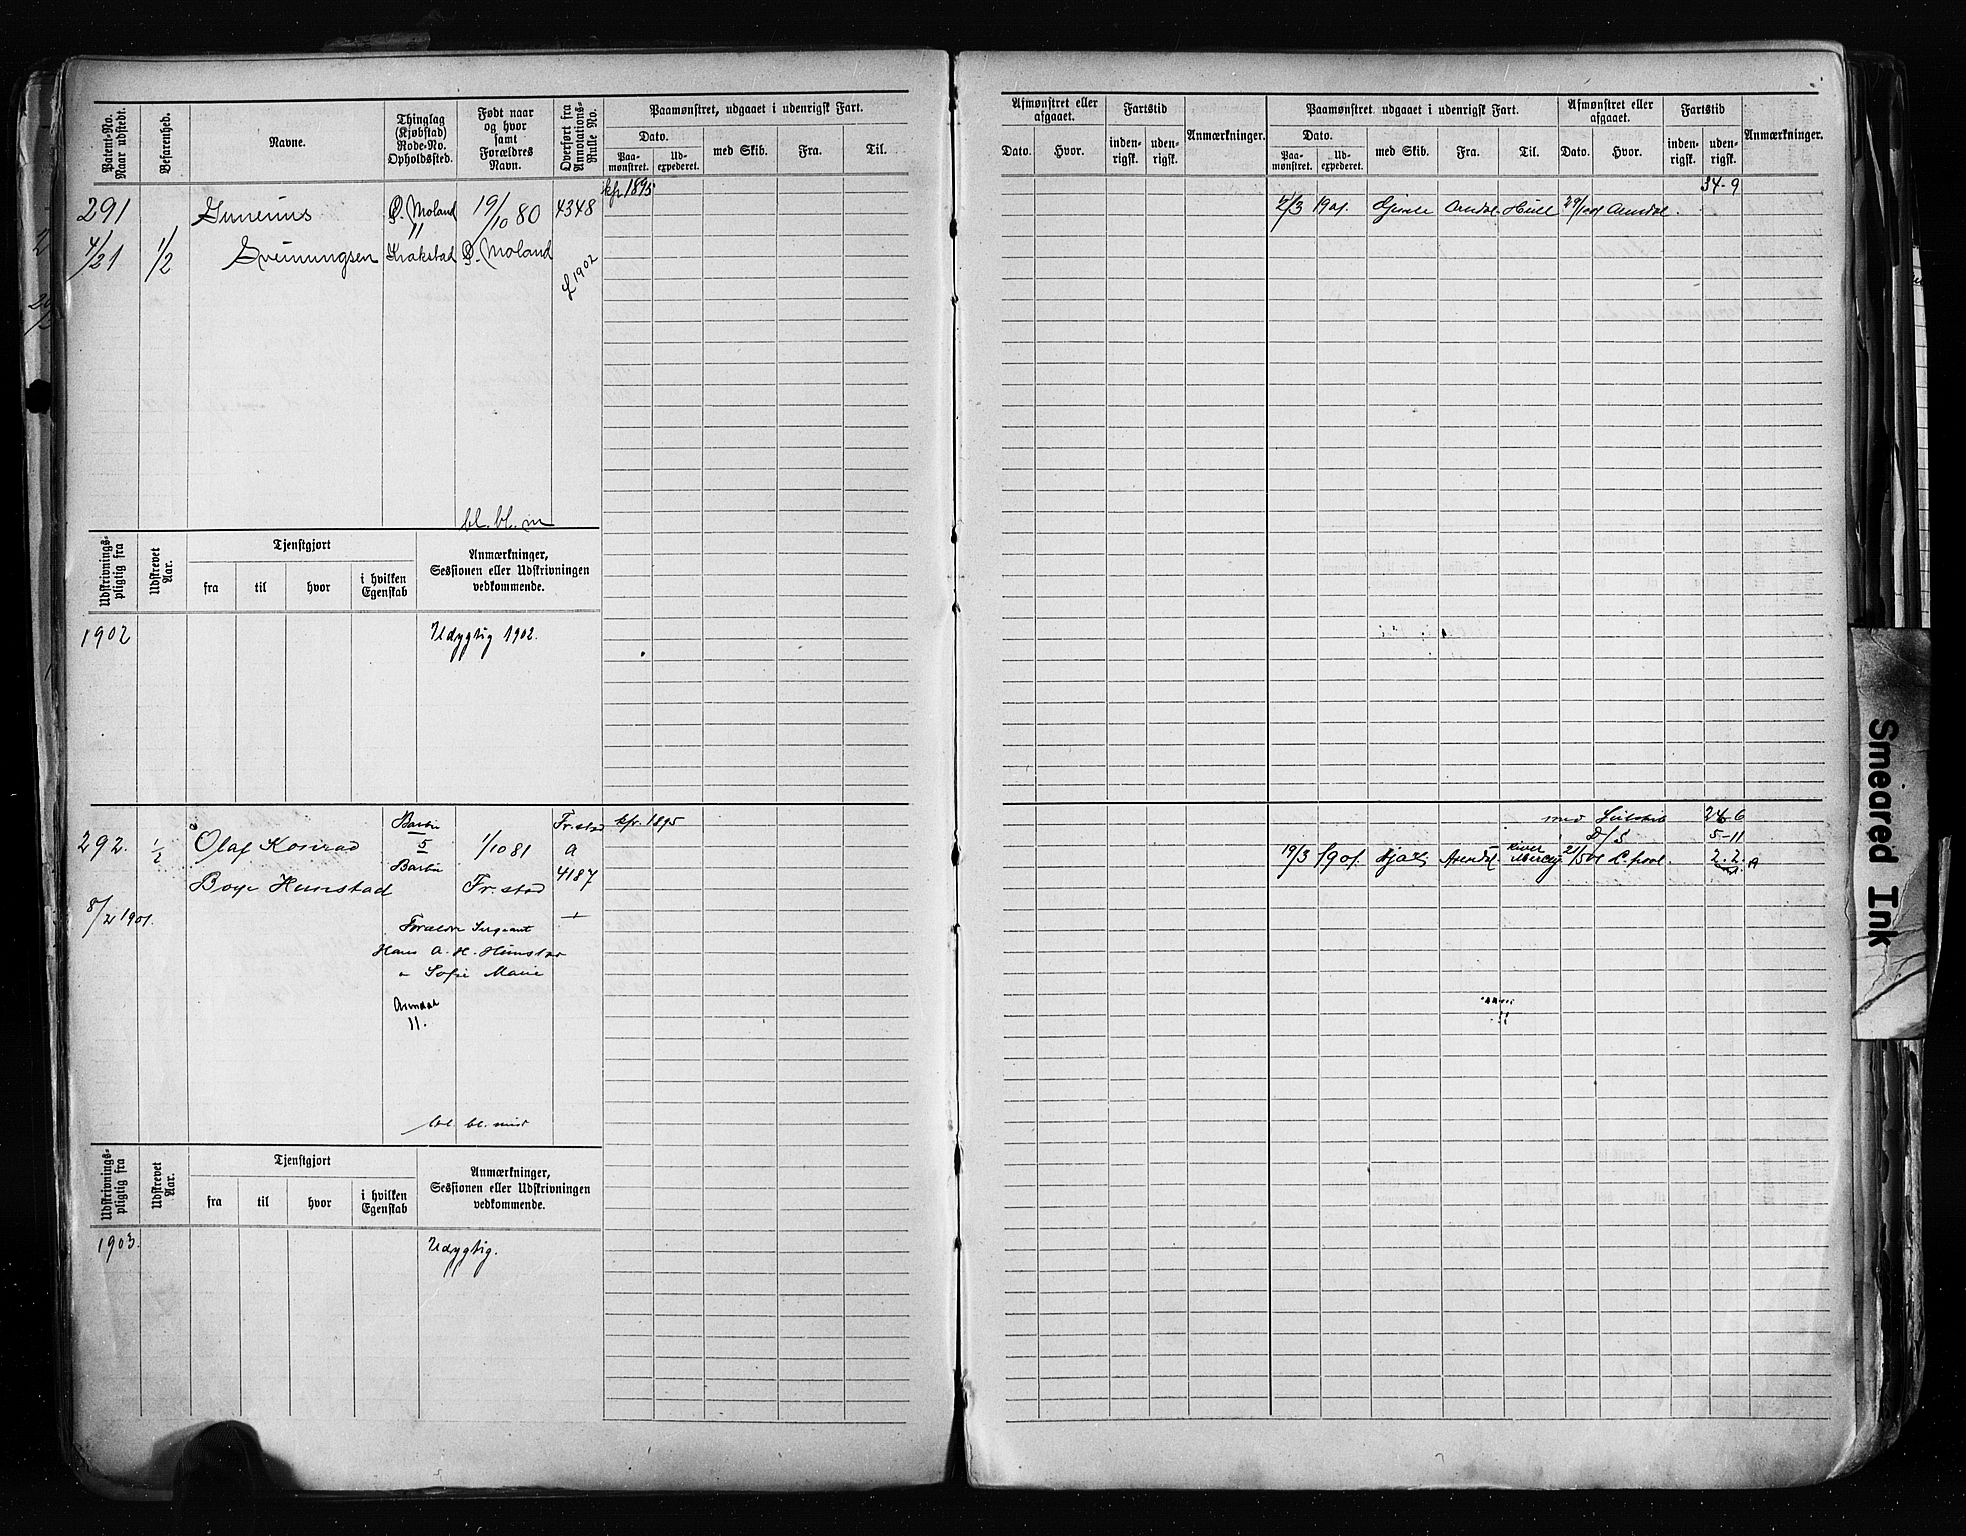 Patent-No. Naar udstedt.
Befarenhed.
Navne.
Thinglag (Kjøbstad) Rode-No. Opholdssted.
Født naar og hvor samt Forældres Navn.
Overført fra Annotations-Rulle No.
Paamønstret, udgaaet i udenrigsk Fart.
Dato.
Paa-mønstret.
Ud-expederet.
med Skib.
Fra.
Til.
kfr 1895
291
Gunerius
Ø. Moland
19/10 80
4348
11
4/21
1/2
Sveinungsen
Krakstad
Ø. Moland
£ 1902
bl. bl. m
Udskrivnings-pligtig fra
Udskrevet Aar.
Tjenstgjort
fra
til
hvor
i hvilken Egenskab
Anmærkninger, Sessionen eller Udskrivningen vedkommende.
1902
Udygtig 1902.
292.
1/2
Olaf Konrad
Barbu
5
1/10 81
Fr.stad
a
4187
kfr. 1895
Boye Hunstad
Barbu
Fr. stad
8/2 1901.
Forældre Sergeant
Hans A. H. Hunstad
" Sofie Marie
Arendal
11.
bl. bl. mid
Udskrivnings-pligtig fra
Udskrevet Aar.
Tjenstgjort
fra
til
hvor
i hvilken Egenskab
Anmærkninger, Sessionen eller Udskrivningen vedkommende.
1903.
Udygtig.
Afmønstret eller afgaaet.
Dato.
Hvor.
Fartstid
inden-rigsk.
uden-rigsk.
Anmærkninger.
Paamønstret, udgaaet i udenrigsk Fart.
Dato.
Paa-mønstret.
Ud-expederet.
med Skib.
Fra.
Til.
Afmønstret eller afgaaet.
Dato.
Hvor.
Fartstid
inden-rigsk.
uden-rigsk.
Anmærkninger.
34-9
2/3 1901. Gimle Arndal. Hull Arndal.
24-6
D/S 5-11
19/3 1901. Arendal River Mersey 21/5 01 L.pool. 2.2. A
Smeared Ink